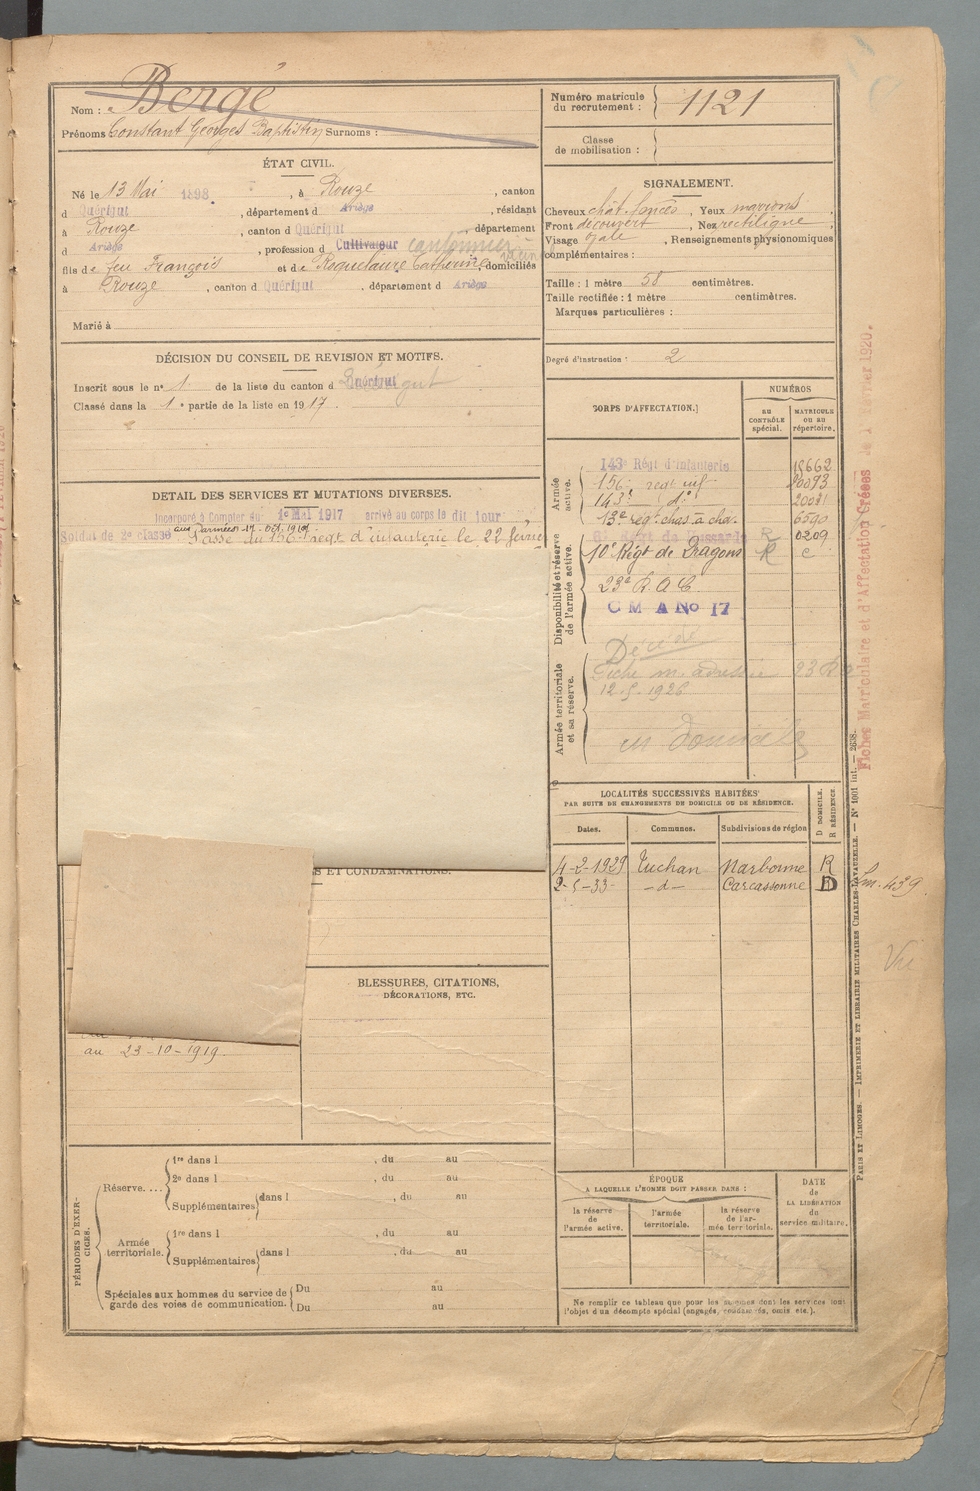 Nom : Bergé
Prénoms Constant Georges Baptistin Surnoms :
ÉTAT CIVIL.
Né le 13 Mai 1898, à Rouze, canton
d Quérigut, département d Ariège, résidant
à Rouze, canton d Quérigut, département
d Ariège, profession d Cultivateur cantonnier
fils de feu François et de Roquelaure Catherine, domiciliés
à Rouze, canton d Quérigut, département d Ariège
Marié à
DÉCISION DU CONSEIL DE REVISION ET MOTIFS.
Inscrit sous le n° 1 de la liste du canton d Quérigut
Classé dans la 1e partie de la liste en 1917.
DETAIL DES SERVICES ET MUTATIONS DIVERSES.
Incorporé à Compter du 1e Mai 1917 arrivé au corps le dit jour
aux armées 17 oct. 1917
Soldat de 2e classe Passé au 156e régt d'infanterie le 22 février
S ET CONDAMNATIONS.
BLESSURES, CITATIONS,
DÉCORATIONS, ETC.
au 23-10-1919.
PÉRIODES D'EXERCICES.
Réserve....
1re dans l , du au
2e dans l , du au
Supplémentaires dans l , du au
Armée territoriale.
1re dans l , du au
Supplémentaires dans l , du au
Spéciales aux hommes du service de
garde des voies de communication.
Du au
Du au
Numéro matricule
du recrutement : 1121
Classe
de mobilisation :
SIGNALEMENT.
Cheveux chât. foncés, Yeux marrons,
Front découvert, Nez rectiligne,
Visage ovale, Renseignements physionomiques
complémentaires :
Taille : 1 mètre 58 centimètres.
Taille rectifiée : 1 mètre centimètres.
Marques particulières :
Degré d'instruction : 2
CORPS D'AFFECTATION.
NUMÉROS
AU CONTRÔLE spécial.
MATRICULE OU AU répertoire.
Armée active.
143e Régt d'infanterie
156e regt inf 20093
143e d° 20021
13e reg. chas. à chev. 6590
Disponibilité et réserve de l'armée active.
R 0209
10e Régt de Dragons R c
23e R. A. C.
C M A No 17
Armée territoriale et sa réserve.
Décédé
Fiche m. adressée 23 R
12-5-1926
LOCALITÉS SUCCESSIVES HABITÉES
PAR SUITE DE CHANGEMENTS DE DOMICILE OU DE RÉSIDENCE.
Dates. Communes. Subdivisions de région
D DOMICILE.
R RÉSIDENCE.
4-2-1929 Tuchan Narbonne R
2-5-33- -d- Carcassonne D
ÉPOQUE
A LAQUELLE L'HOMME DOIT PASSER DANS :
la réserve de l'armée active.
l'armée territoriale.
la réserve de l'armée territoriale.
DATE
de
LA LIBÉRATION
du
service militaire.
Ne remplir ce tableau que pour les hommes dont les services font
l'objet d'un décompte spécial (engagés, omis etc.).
PARIS ET LIMOGES. — IMPRIMERIE ET LIBRAIRIE MILITAIRES CHARLES-LAVAUZELLE. — N° 1001 int. — 2638.
Fiches Matriculaire et d'Affectation Créées le 1 Février 1920.